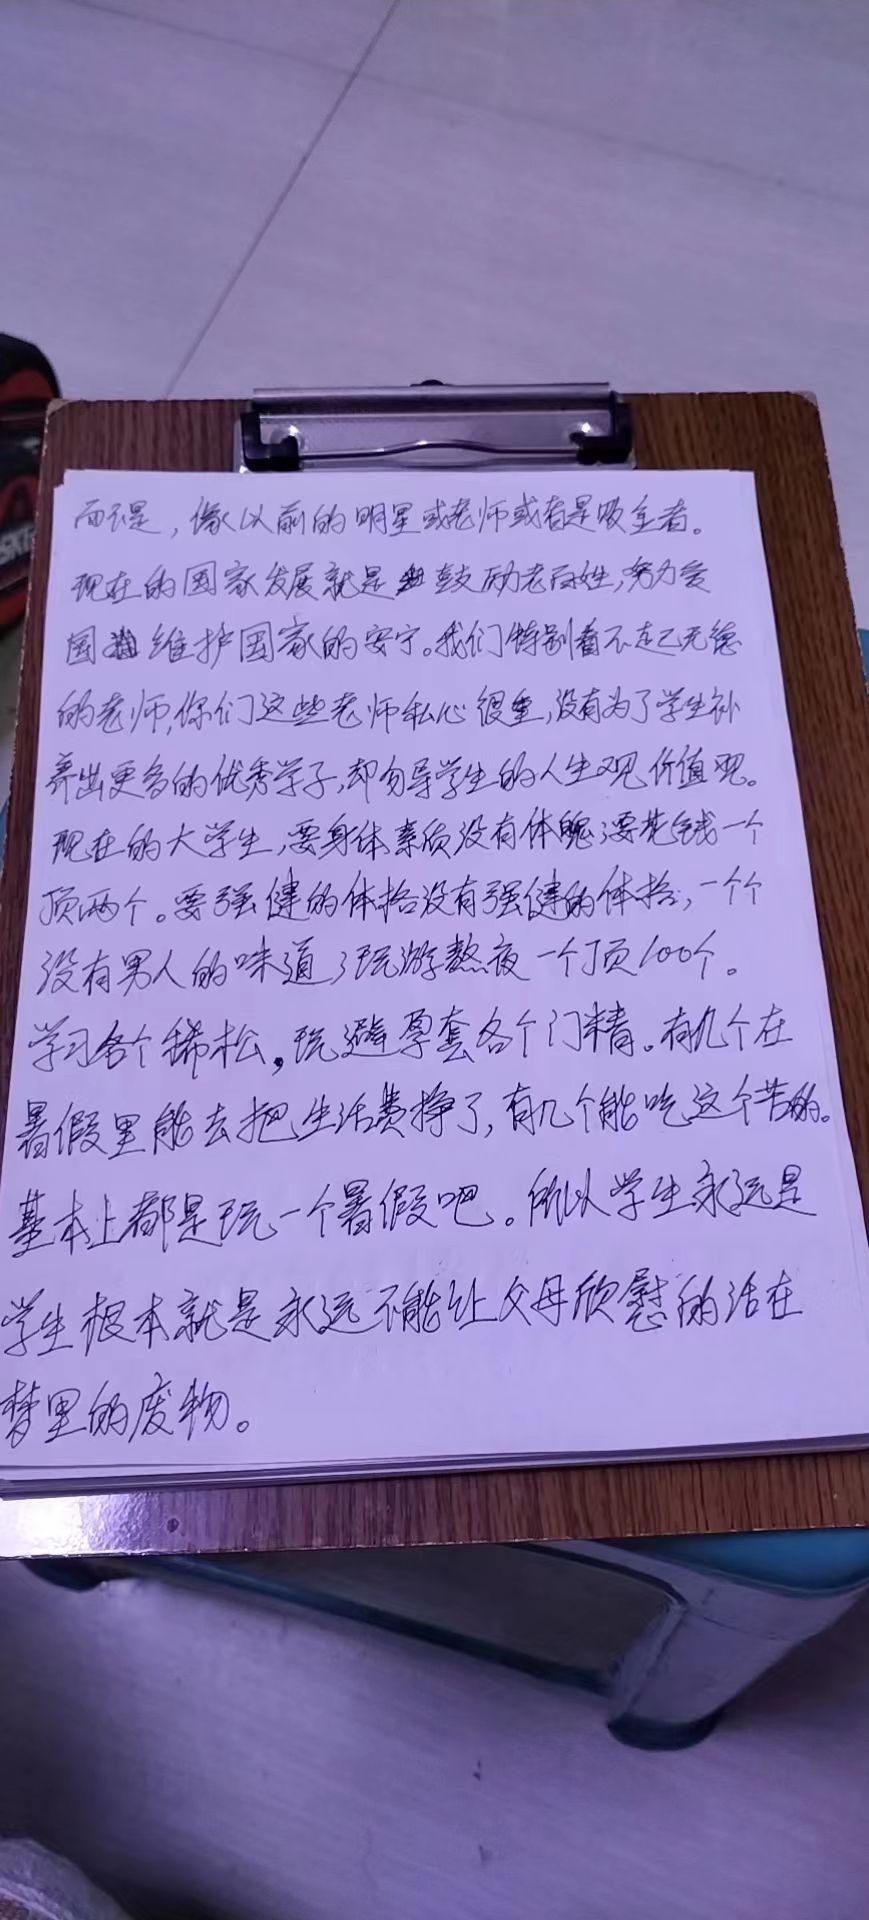 而不是，像以前的明星或老师或者是吸金者。
现在的国家发展就是鼓励老百姓，努力爱
国 维护国家的安宁。我们特别看不起无德
的老师，你们这些老师私心很重，没有为了学生补
养出更多的优秀学子，却勿导学生的人生观价值观。
现在的大学生，要身体素质没有体魄；要花钱一个
顶两个。要强健的体格没有强健的体格，一个个
没有男人的味道；玩游熬夜一个顶100个。
学习各个稀松，玩避孕套各个门精。有几个在
暑假里能去把生活费挣了，有几个能吃这个苦的。
基本上都是玩一个暑假吧。所以学生永远是
学生根本就是永远不能让父母欣慰的活在
梦里的废物。